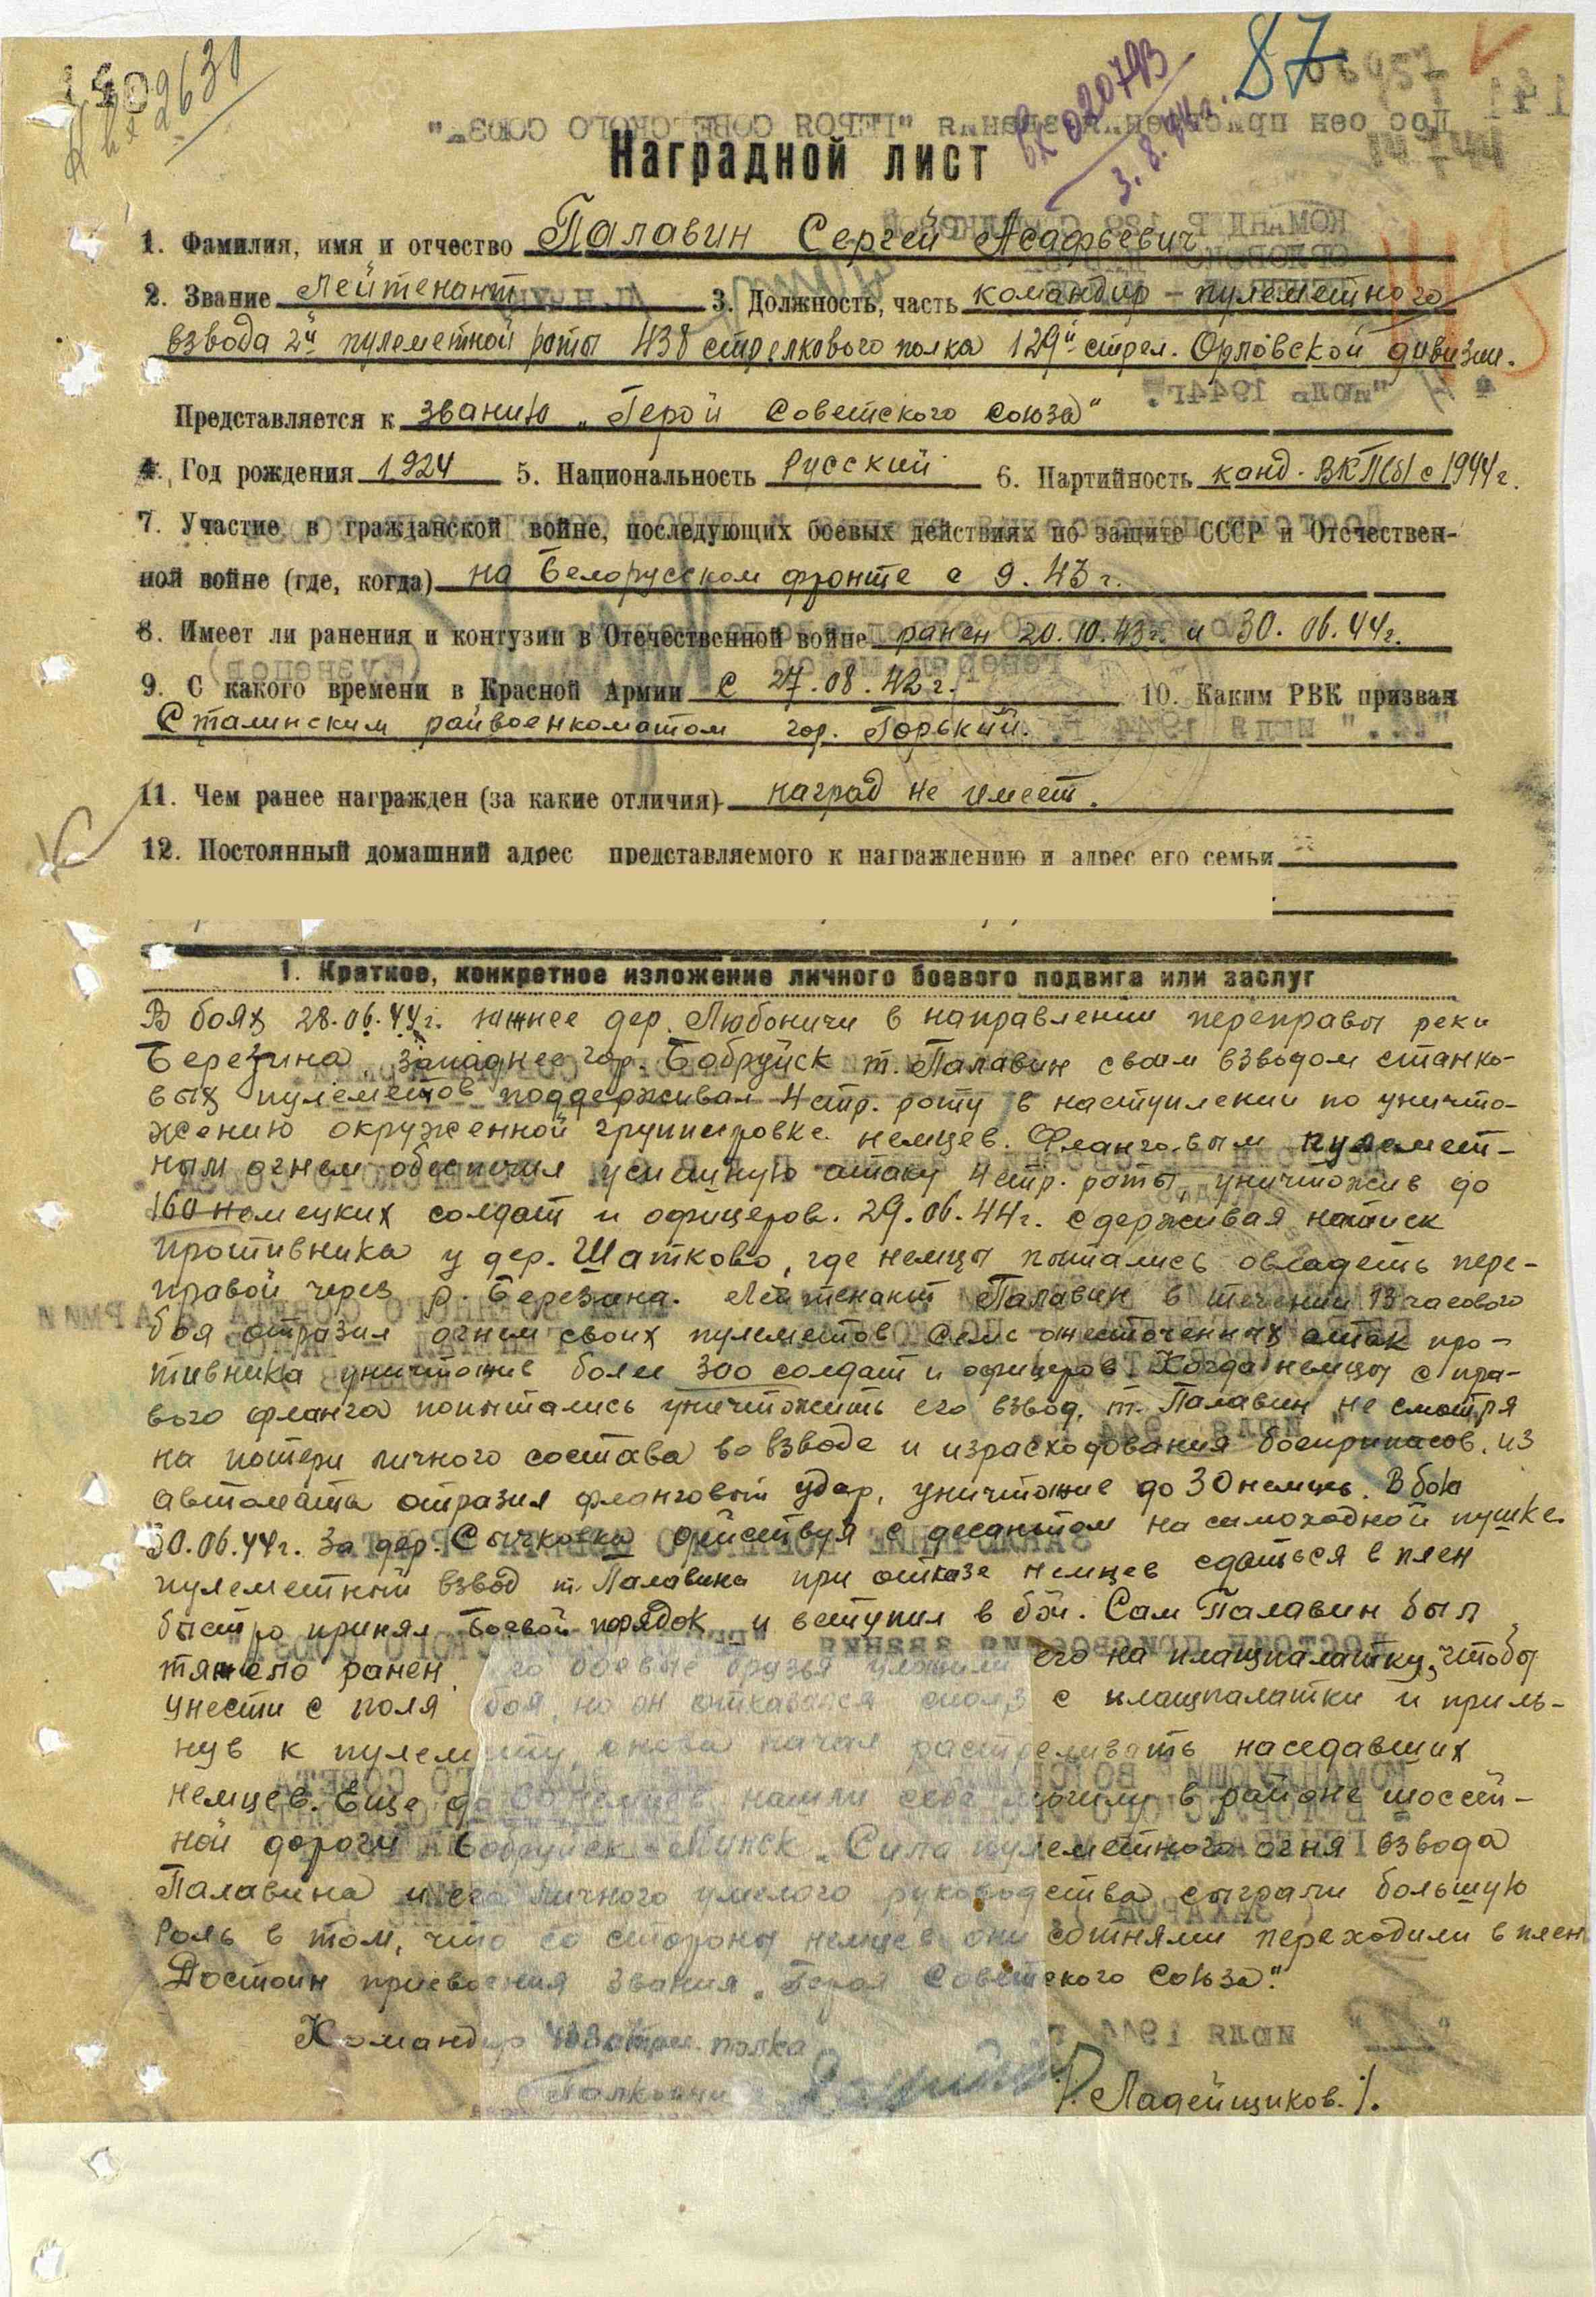 140
Вх 2631
Вх 020793
3.8.44г.
87
Наградной лист
1. Фамилия, имя и отчество Палавин Сергей Асафьевич
2. Звание Лейтенант 3. Должность, часть командир - пулеметного
взвода 2й пулеметной роты 438 стрелкового полка 129й стрел. Орловской дивизии.
Представляется к званию "Герой Советского Союза"
4. Год рождения 1924 5. Национальность Русский 6. Партийность канд. ВКП(б) с 1944г.
7. Участие в гражданской войне, последующих боевых действиях по защите СССР и Отечествен-
ной войне (где, когда) на Белорусском фронте с 9.43г.
8. Имеет ли ранения и контузии в Отечественной войне ранен 20.10.43г. и 30.06.44г.
9. С какого времени в Красной Армии с 27.08.42г. 10. Каким РВК призван
Сталинским райвоенкоматом гор. Горький.
11. Чем ранее награжден (за какие отличия) наград не имеет.
12. Постоянный домашний адрес представляемого к награждению и адрес его семьи
1. Краткое, конкретное изложение личного боевого подвига или заслуг
В боях 28.06.44г. южнее дер. Любоничи в направлении переправы реки
Березина, западнее гор. Бобруйск т. Палавин своим взводом станко-
вых пулеметов поддерживал 4 стр. роту в наступлении по уничто-
жению окруженной группировке немцев. Фланговым пулемет-
ным огнем обеспечил успешную атаку 4 стр. роты, уничтожив до
160 немецких солдат и офицеров. 29.06.44г. сдерживая натиск
противника у дер. Шатково, где немцы пытались овладеть пере-
правой через р. Березина. Лейтенант Палавин в течении 13 часового
боя отразил огнем своих пулеметов семь ожесточенных атак про-
тивника уничтожив более 300 солдат и офицеров. Когда немцы с пра-
вого фланга попытались уничтожить его взвод, т. Палавин не смотря
на потери личного состава во взводе и израсходования боеприпасов, из
автомата отразил фланговый удар, уничтожив до 30 немцев. В бою
30.06.44г. за дер. Сычково действуя с десантом на самоходной пушке.
пулеметный взвод т. Палавина при отказе немцев сдаться в плен
быстро принял боевой порядок и вступил в бой. Сам Палавин был
тяжело ранен. Его боевые друзья уложили его на плащпалатку, чтобы
унести с поля боя, но он отказался сполз с плащпалатки и приль-
нув к пулемету, снова начал растреливать наседавших
немцев. Еще до 60 немцев нашли себе могилу в районе шоссей-
ной дороги Бобруйск - Минск. Сила пулеметного огня взвода
Палавина и его личного умелого руководства сыграли большую
роль в том, что со стороны немцев они сотнями переходили в плен
Достоин присвоения звания "Героя Советского Союза."
Командир 438 стрел. полка
Полковник /Ладейщиков./.